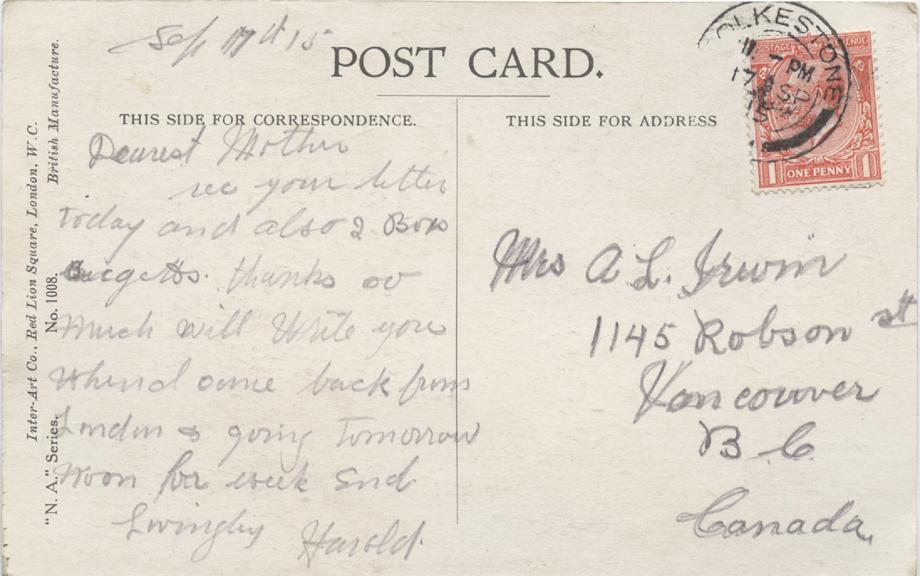 Sep 17th 15
POST CARD.
THIS SIDE FOR CORRESPONDENCE.
THIS SIDE FOR ADDRESS
FOLKESTONE
PM
17 SP
15
POSTAGE
ONE PENNY
1
1
Dearest Mother
rec your letter
today and also 2 Boxs
thanks so
much will Write you
when I come back from
London going Tomorrow
noon for week End
Lovingly
Harold.
Mrs A L. Irwin
1145 Robson st
Vancouver
B C
Canada,
Inter-Art Co., Red Lion Square, London, W.C.
British Manufacture.
"N. A." Series. No. 1008.